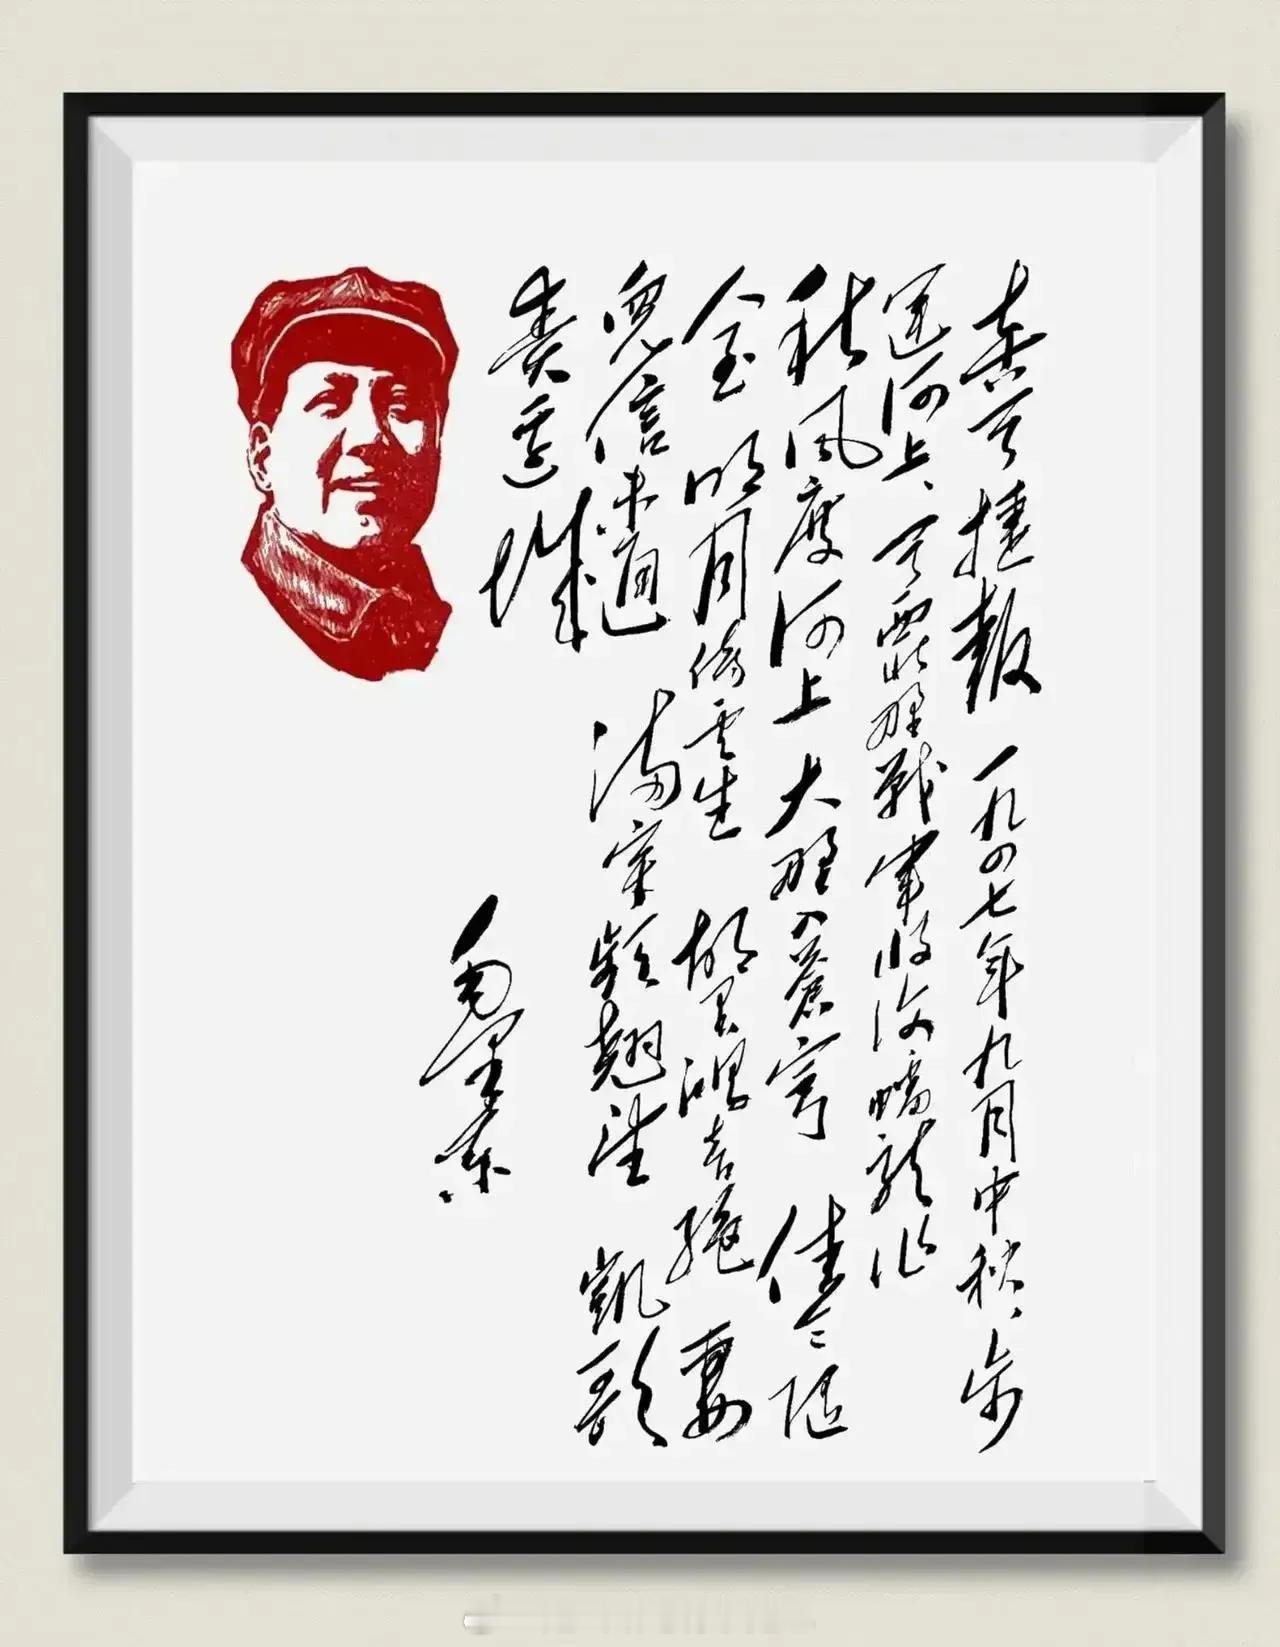 喜闻捷報 一九四七年九月中秋、步
運河上、闻西北野戰軍收復蟠龍作
秋风度河上 大野入蒼穹 佳令随
人至 明月傍雲生 故里鴻音絕 妻
兒信未通 满宇频翘望 凱歌
奏边城
毛泽东